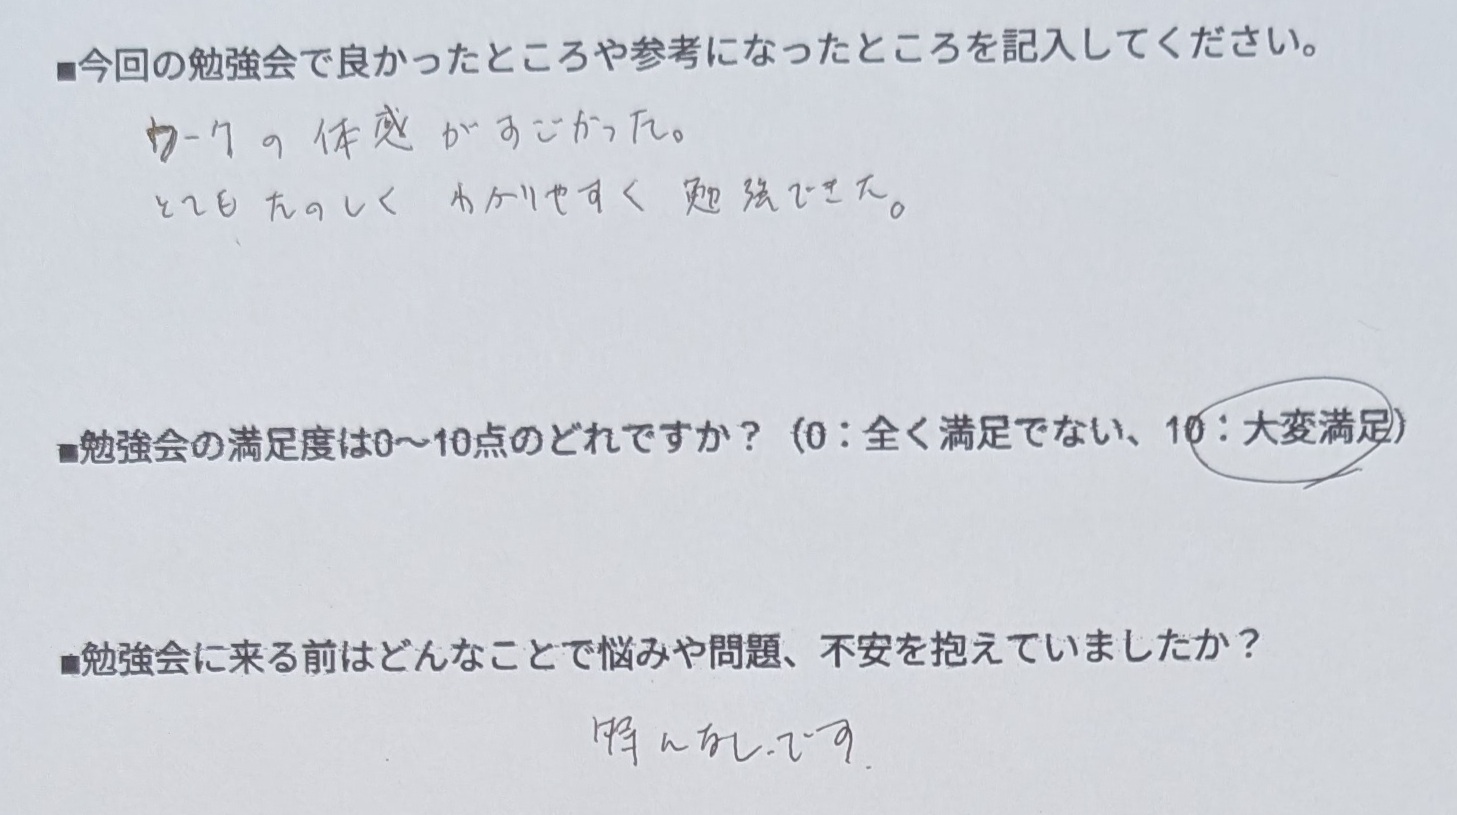 ■今回の勉強会で良かったところや参考になったところを記入してください。
ワークの体感がすごかった。
とてもたのしく わかりやすく 勉強できた。
■勉強会の満足度は0～10点のどれですか？（0：全く満足でない、10：大変満足）
■勉強会に来る前はどんなことで悩みや問題、不安を抱えていましたか？
特になしです.